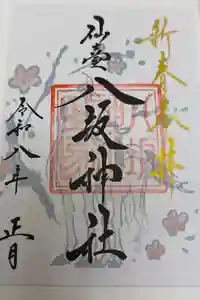 新春参拝
仙臺
八坂神社
令和八年
正月